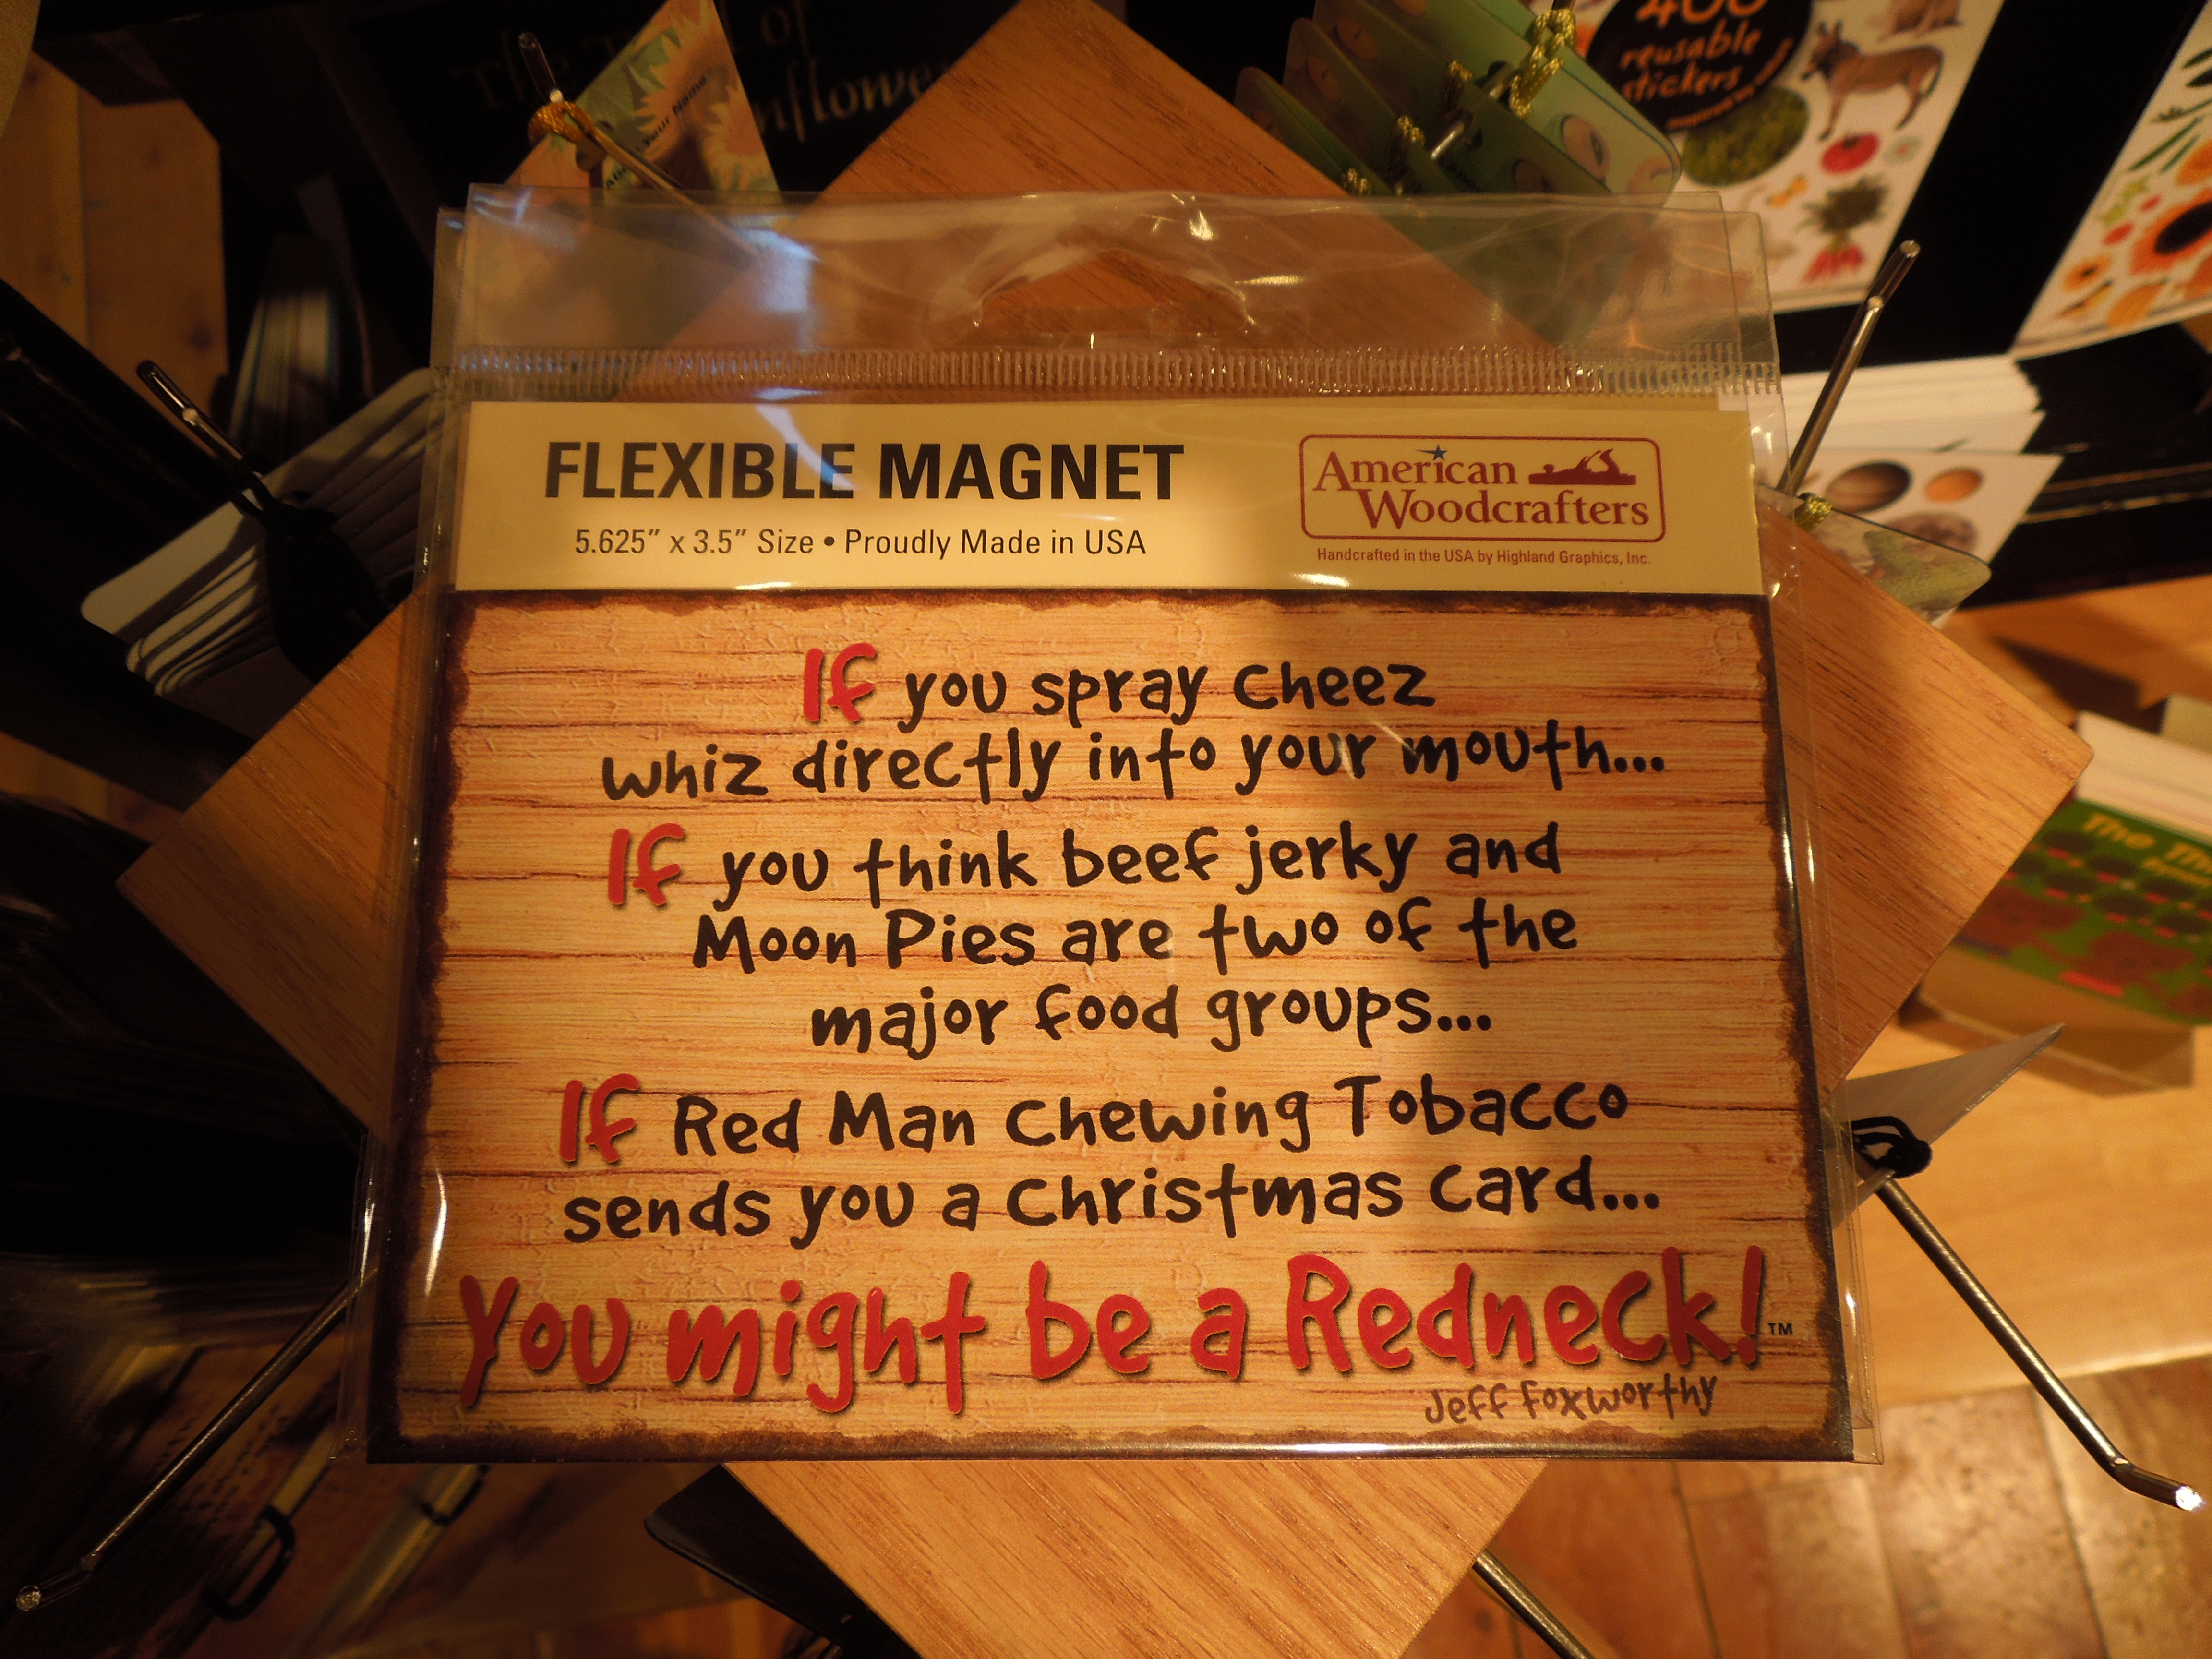 The of
nflowe
Your Name
400
reusable
stickers
FLEXIBLE MAGNET
5.625" x 3.5" Size • Proudly Made in USA
American
Woodcrafters
Handcrafted in the USA by Highland Graphics, Inc.
If you spray Cheez
whiz directly into your mouth...
If you think beef jerky and
Moon Pies are two of the
major food groups...
If Red Man Chewing Tobacco
sends you a Christmas card...
You might be a Redneck!™
Jeff Foxworthy
The